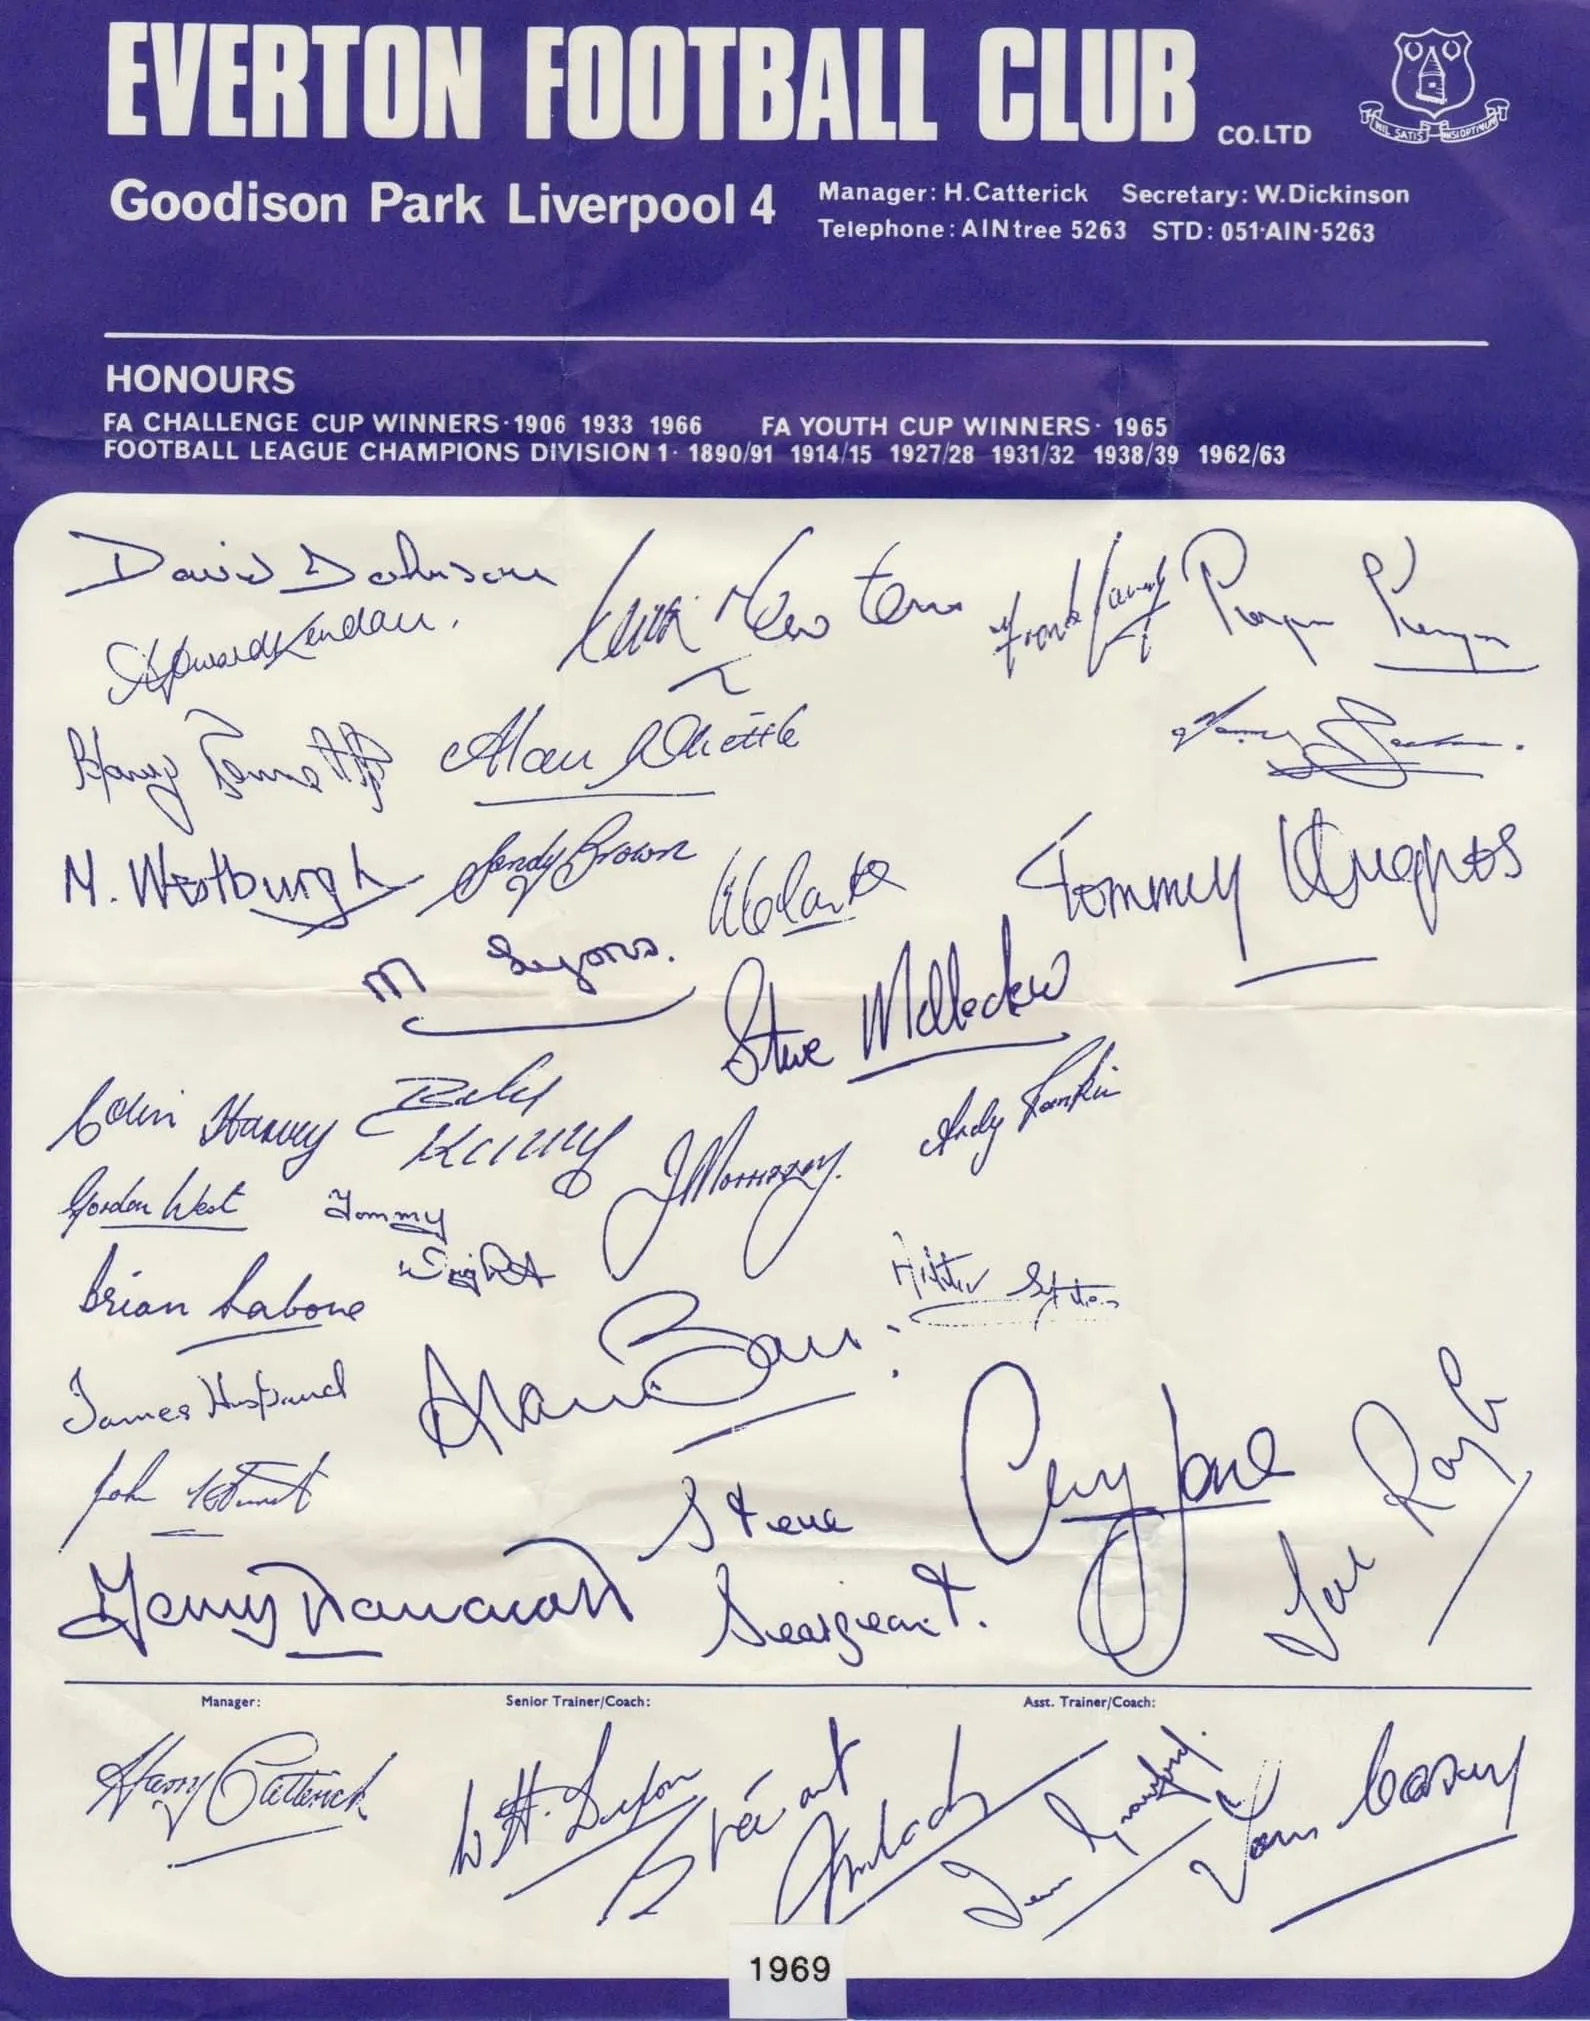 EVERTON FOOTBALL CLUB CO.LTD
NIL SATIS NISI OPTIMUM
Goodison Park Liverpool 4
Manager: H.Catterick Secretary: W.Dickinson
Telephone: AINtree 5263 STD: 051·AIN·5263
HONOURS
FA CHALLENGE CUP WINNERS·1906 1933 1966 FA YOUTH CUP WINNERS· 1965
FOOTBALL LEAGUE CHAMPIONS DIVISION 1· 1890/91 1914/15 1927/28 1931/32 1938/39 1962/63
David Johnson
Keith Newton
Roger Kenyon
Howard Kendall.
Alan Whittle
Tommy Jackson.
M. Westburgh
Sandy Brown
W Clarke
Tommy Hughes
M Lyons.
Steve Melledew
Colin Harvey
J Morrissey.
Andy Rankin
Gordon West
Tommy
Wright
Brian Labone
James Husband
Alan Ball
John Hurst
Steve
Seargeant.
Gerry Jones
Joe Royle
Manager: Senior Trainer/Coach: Asst. Trainer/Coach:
Harry Catterick
W.H. Dixon
Stewart Imlach
Tom Casey
1969